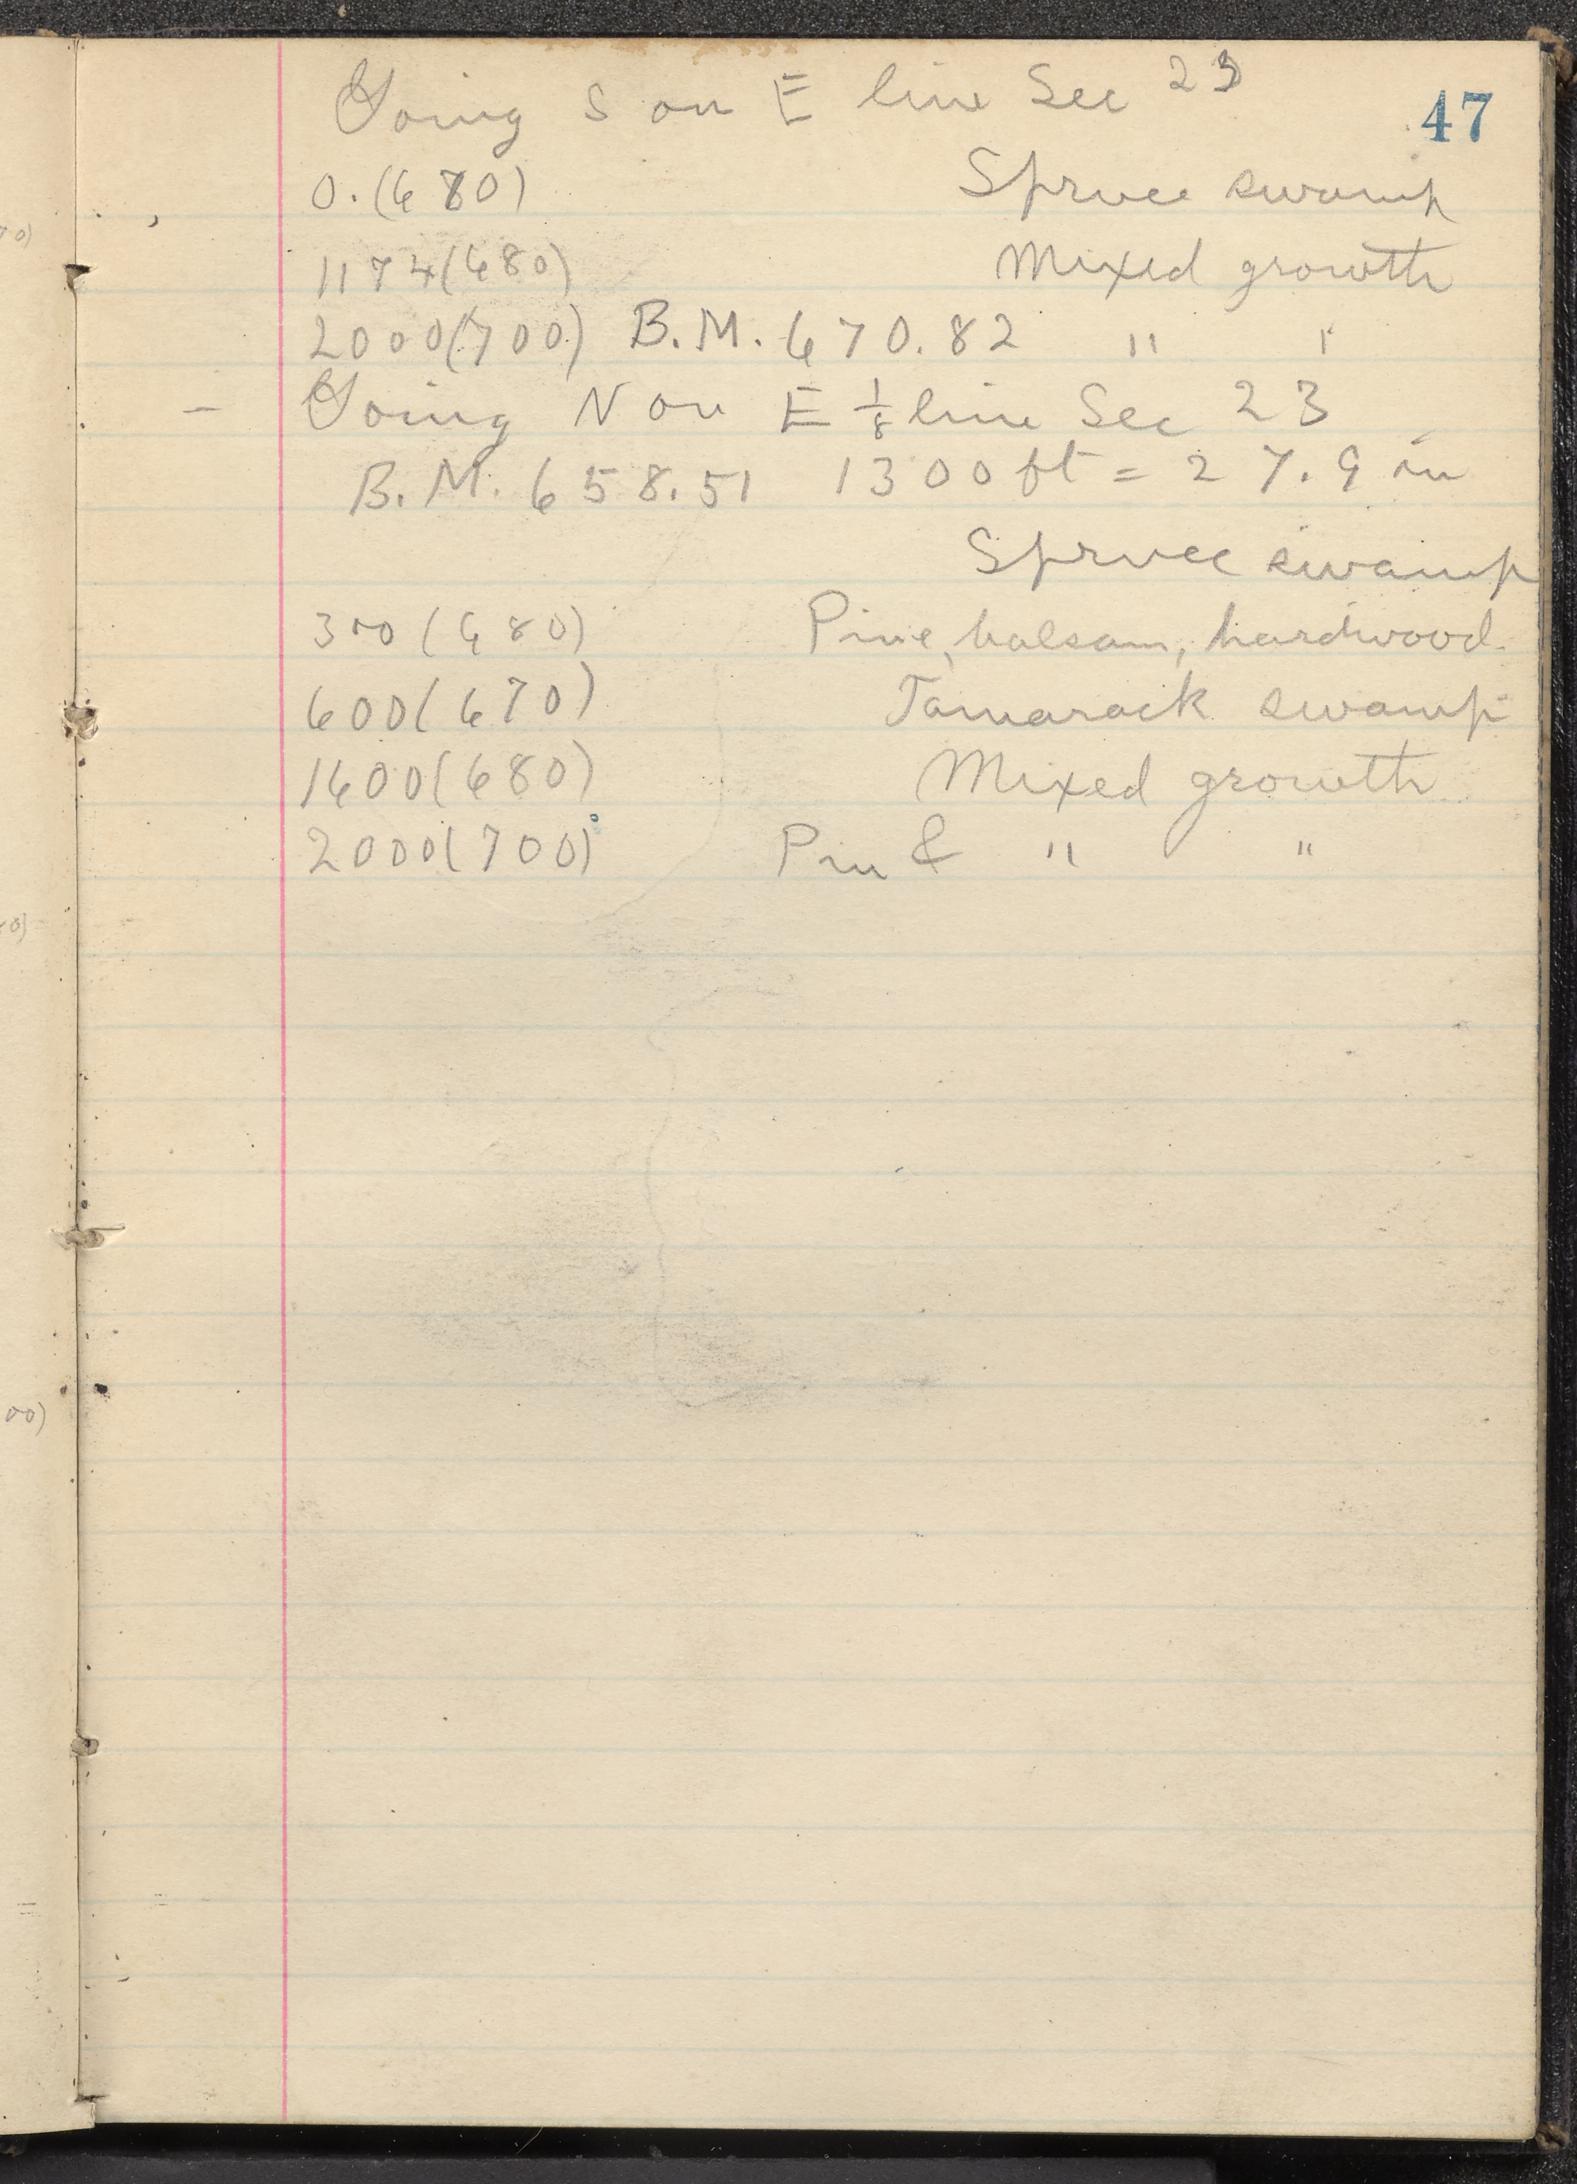 47
Going S on E line Sec 23
0.(680) Spruce swamp
1174(680) Mixed growth
2000(700) B.M. 670.82 " "
- Going N on E 1/8 line Sec 23
B.M. 658.51 1300 ft = 27.9 in
Spruce swamp
300(680) Pine, balsam, hardwood.
600(670) Tamarack swamp
1600(680) Mixed growth
2000(700) Pine & " "